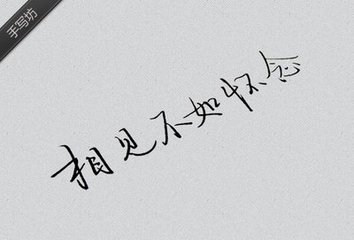 手写坊
相见不如怀念